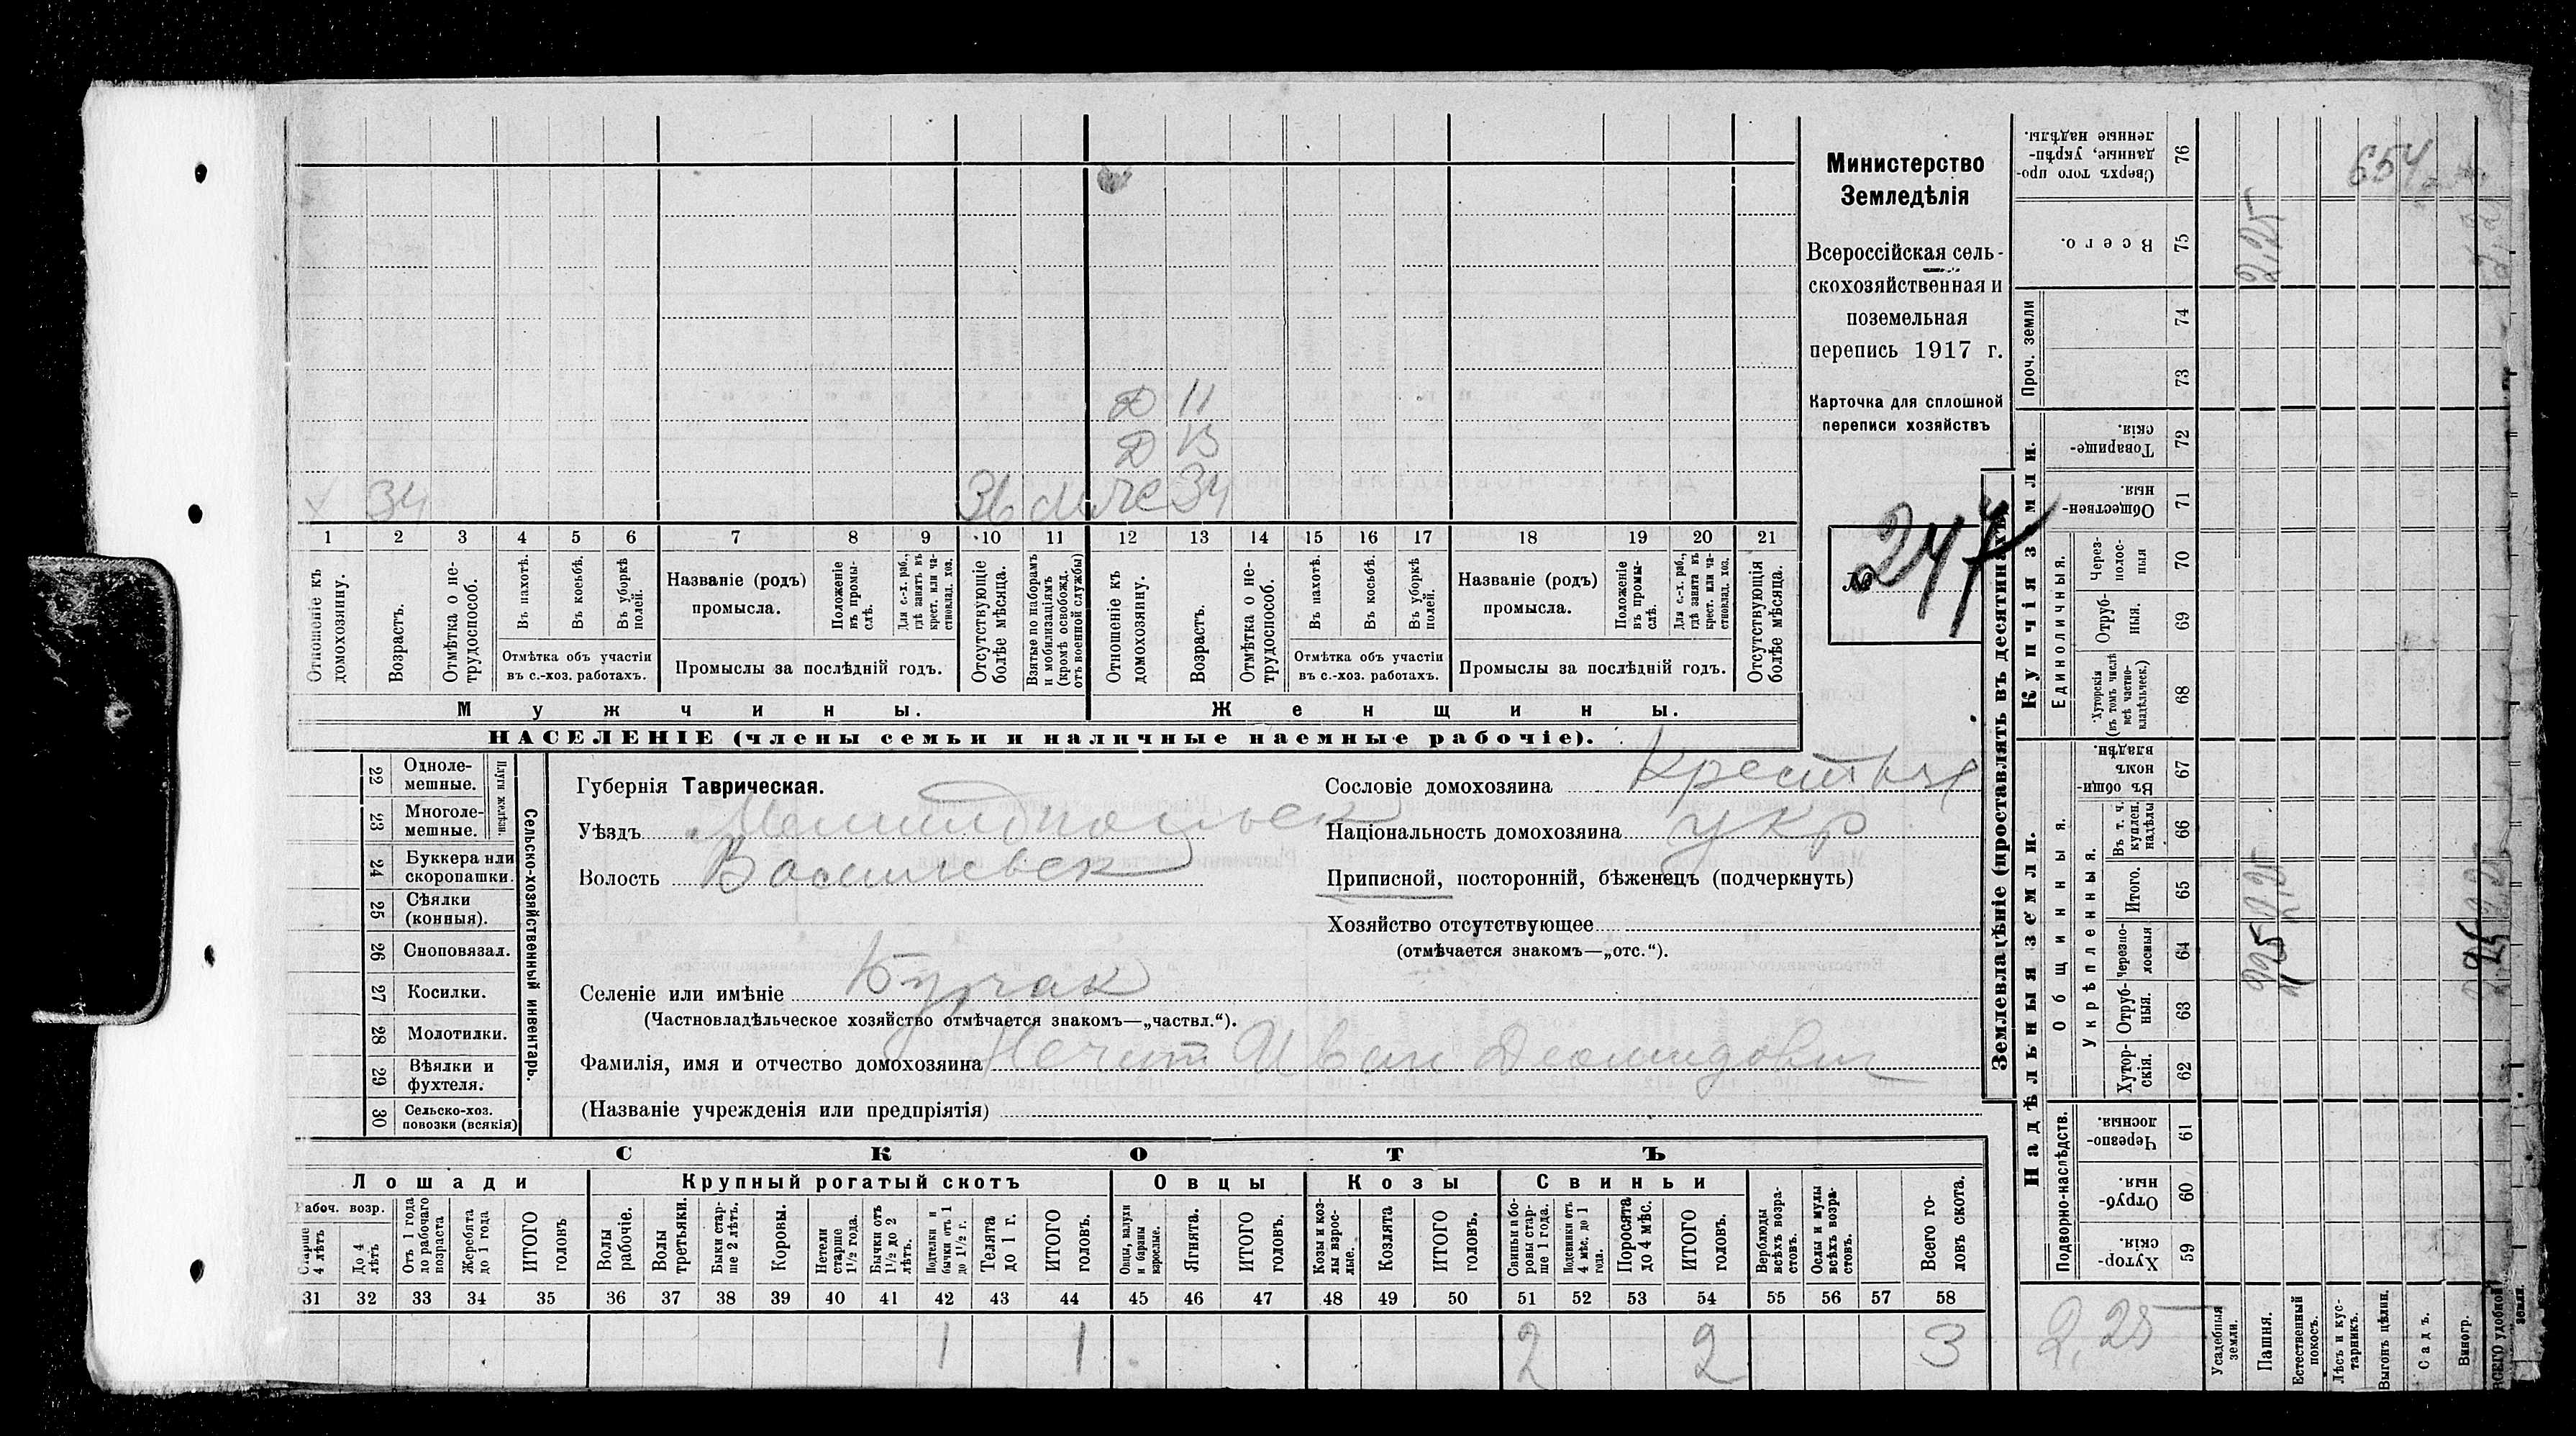 Министерство
Земледѣлія
Всероссійская сель-
скохозяйственная и
поземельная
перепись 1917 г.
Карточка для сплошной
переписи хозяйствъ
№ 247
Д 11
Д 13
х 34 Зб 34
1 2 3 4 5 6 7 8 9 10 11 12 13 14 15 16 17 18 19 20 21
Отношеніе къ домохозяину.
Возрастъ.
Отмѣтка о не-трудоспособ.
Въ пахотѣ.
Въ косьбѣ.
Въ уборкѣ полей.
Отмѣтка объ участіи въ с.-хоз. работахъ.
Названіе (родъ) промысла.
Положеніе въ промы-слѣ.
Для с.-х. раб., гдѣ занятъ въ крест. или ча-стновлад. хоз.
Промыслы за послѣдній годъ.
Отсутствующіе болѣе мѣсяца.
Взятые по наборамъ и мобилизаціямъ (кромѣ освобожд. отъ военной службы)
Отношеніе къ домохозяину.
Возрастъ.
Отмѣтка о не-трудоспособ.
Въ пахотѣ.
Въ косьбѣ.
Въ уборкѣ полей.
Отмѣтка объ участіи въ с.-хоз. работахъ.
Названіе (родъ) промысла.
Положеніе въ промы-слѣ.
Для с.-х. раб., гдѣ занята въ крест. или ча-стновлад. хоз.
Промыслы за послѣдній годъ.
Отсутствующія болѣе мѣсяца.
Мужчины. Женщины.
НАСЕЛЕНІЕ (члены семьи и наличные наемные рабочіе).
Сельско-хозяйственный инвентарь.
Плуги желѣзн.
22 Одноле-мешные.
23 Многоле-мешные.
24 Буккера или скоропашки.
25 Сѣялки (конныя).
26 Сноповязал.
27 Косилки.
28 Молотилки.
29 Вѣялки и фухтеля.
30 Сельско-хоз. повозки (всякія)
Губернія Таврическая.
Уѣздъ Мелитопольск
Волость Васильевск
Сословіе домохозяина Крестья
Національность домохозяина укр
Приписной, посторонній, бѣженецъ (подчеркнуть)
Хозяйство отсутствующее
(отмѣчается знакомъ—„отс.“).
Селеніе или имѣніе Бурчак
(Частновладѣльческое хозяйство отмѣчается знакомъ—„частвл.“).
Фамилія, имя и отчество домохозяина Нечит Иван Диомидович
(Названіе учрежденія или предпріятія)
СКОТЪ
Лошади Крупный рогатый скотъ Овцы Козы Свиньи
Рабоч. возр.
Старше 4 лѣтъ
До 4 лѣтъ
Отъ 1 года до рабочаго возраста
Жеребята до 1 года
ИТОГО головъ
Волы рабочіе.
Волы третьяки.
Быки стар-ше 2 лѣтъ.
Коровы.
Нетели старше 1½ года.
Бычки отъ 1½ до 2 лѣтъ.
Подтелки и бычки отъ 1 до 1½ г.
Телята до 1 г.
ИТОГО головъ.
Овцы, валухи и бараны взрослые.
Ягнята.
ИТОГО головъ.
Козы и коз-лы взрос-лые.
Козлята
ИТОГО головъ.
Свиньи и бо-ровы стар-ше 1 года.
Подсвинки отъ 4 мѣс. до 1 года.
Поросята до 4 мѣс.
ИТОГО головъ.
Верблюды всѣхъ возра-стовъ.
Ослы и мулы всѣхъ возра-стовъ.
Всего го-ловъ скота.
31 32 33 34 35 36 37 38 39 40 41 42 43 44 45 46 47 48 49 50 51 52 53 54 55 56 57 58
1 1 2 2 3
Землевладѣніе (проставлять въ десятинахъ)
Надѣльныя земли.
Купчія земли.
Проч. земли
Подворно-наслѣдств.
Общинныя.
Укрѣпленныя.
Единоличныя.
Хутор-скія. 59
Отруб-ныя. 60
Черезпо-лосныя. 61
Хутор-скія. 62
Отруб-ныя. 63
Черезпо-лосныя 64
Итого. 65
Въ т. ч. куплен. надѣлы 66
Въ общи-номъ владѣн. 67
Хуторскія (въ томъ числѣ всѣ частно-владѣльческ.) 68
Отруб-ныя. 69
Через-полос-ныя 70
Обществен-ныя. 71
Товарище-скія. 72
73
74
Всего. 75
Сверхъ того про-данные, укрѣп-ленные надѣлы. 76
2,25
Усадебныя земли.
Пашня.
Естественный покосъ.
Лѣсъ и кус-тарникъ.
Выгонъ цѣлин.
Садъ.
Виногр.
ВСЕГО удобной земли.
225 2,25 2,25
654